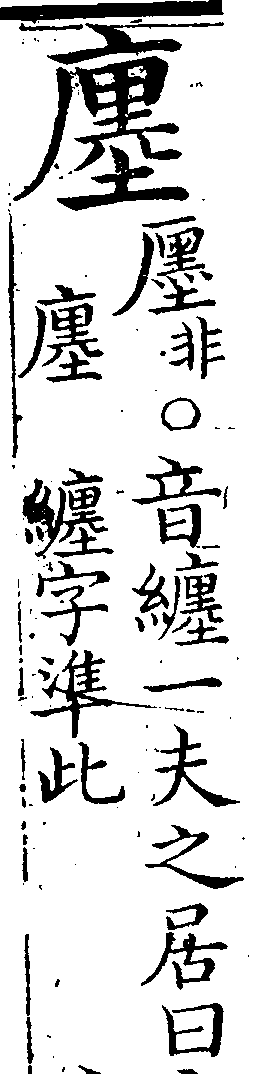 廛
㕓非○音纏一夫之居曰
廛纏字準此